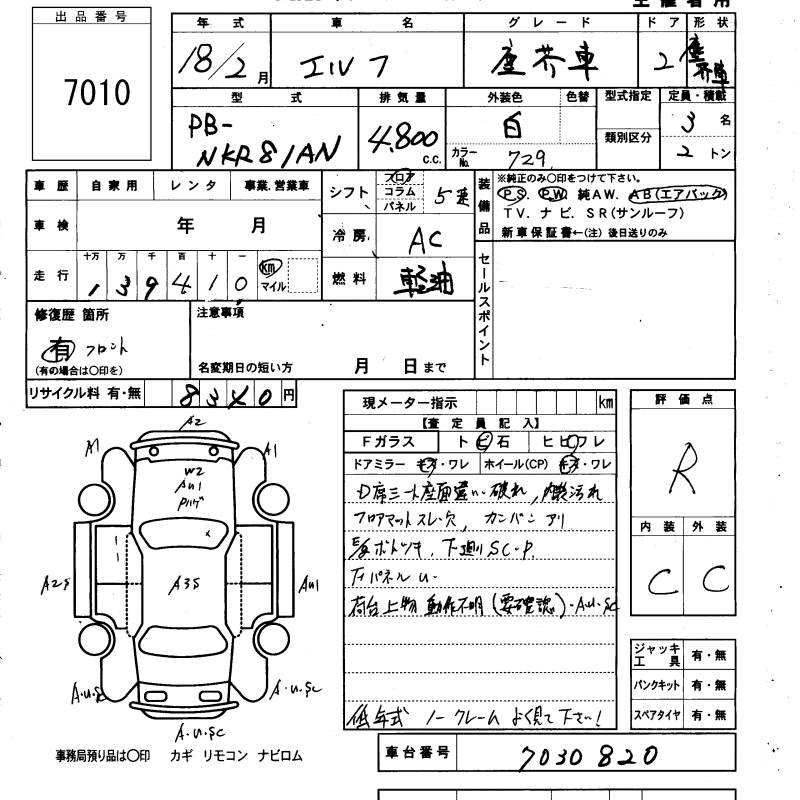 出品番号
7010
年 式 車 名 グレード ドア 形状
18/2月 エルフ 塵芥車 2 塵芥車
型 式 排気量 外装色 色替 型式指定 定員・積載
PB-
NKR81AN 4,800 c.c. 白 カラーNo. 729 類別区分 3名 2トン
車歴 自家用 レンタ 事業.営業車
シフト フロア コラム パネル 5速
装備品 ※純正のみ○印をつけて下さい。
P.S. P.W. 純AW. AB(エアバック)
TV. ナビ. SR(サンルーフ)
新車保証書←(注) 後日送りのみ
車検 年 月
冷房 AC
走行 十万 万 千 百 十 一
1 3 9 4 1 0 km マイル
燃料 軽油
セールスポイント
修復歴 箇所
有 フロント
(有の場合は○印を)
注意事項
名変期日の短い方 月 日まで
リサイクル料 有・無 8 3 4 0 円
現メーター指示 km
【査定員記入】
Fガラス トビ石 ヒビワレ
ドアミラー キズ・ワレ ホイール(CP) キズ・ワレ
D席シート座面違い破れ、内装汚れ
フロアマットスレ・穴、カンバンアリ
下廻りSC・P.
パネル U・
荷台上物動作不明(要確認)・A・U・SC
低年式 ノークレーム よく見て下さい!
評価点
R
内装 外装
C C
ジャッキ工具 有・無
パンクキット 有・無
スペアタイヤ 有・無
A2
A1 A1
W2
AU1
A2S A3S AU1
A・U・SC A・U・SC
A・U・SC
事務局預り品は○印 カギ リモコン ナビロム
車台番号 7030820